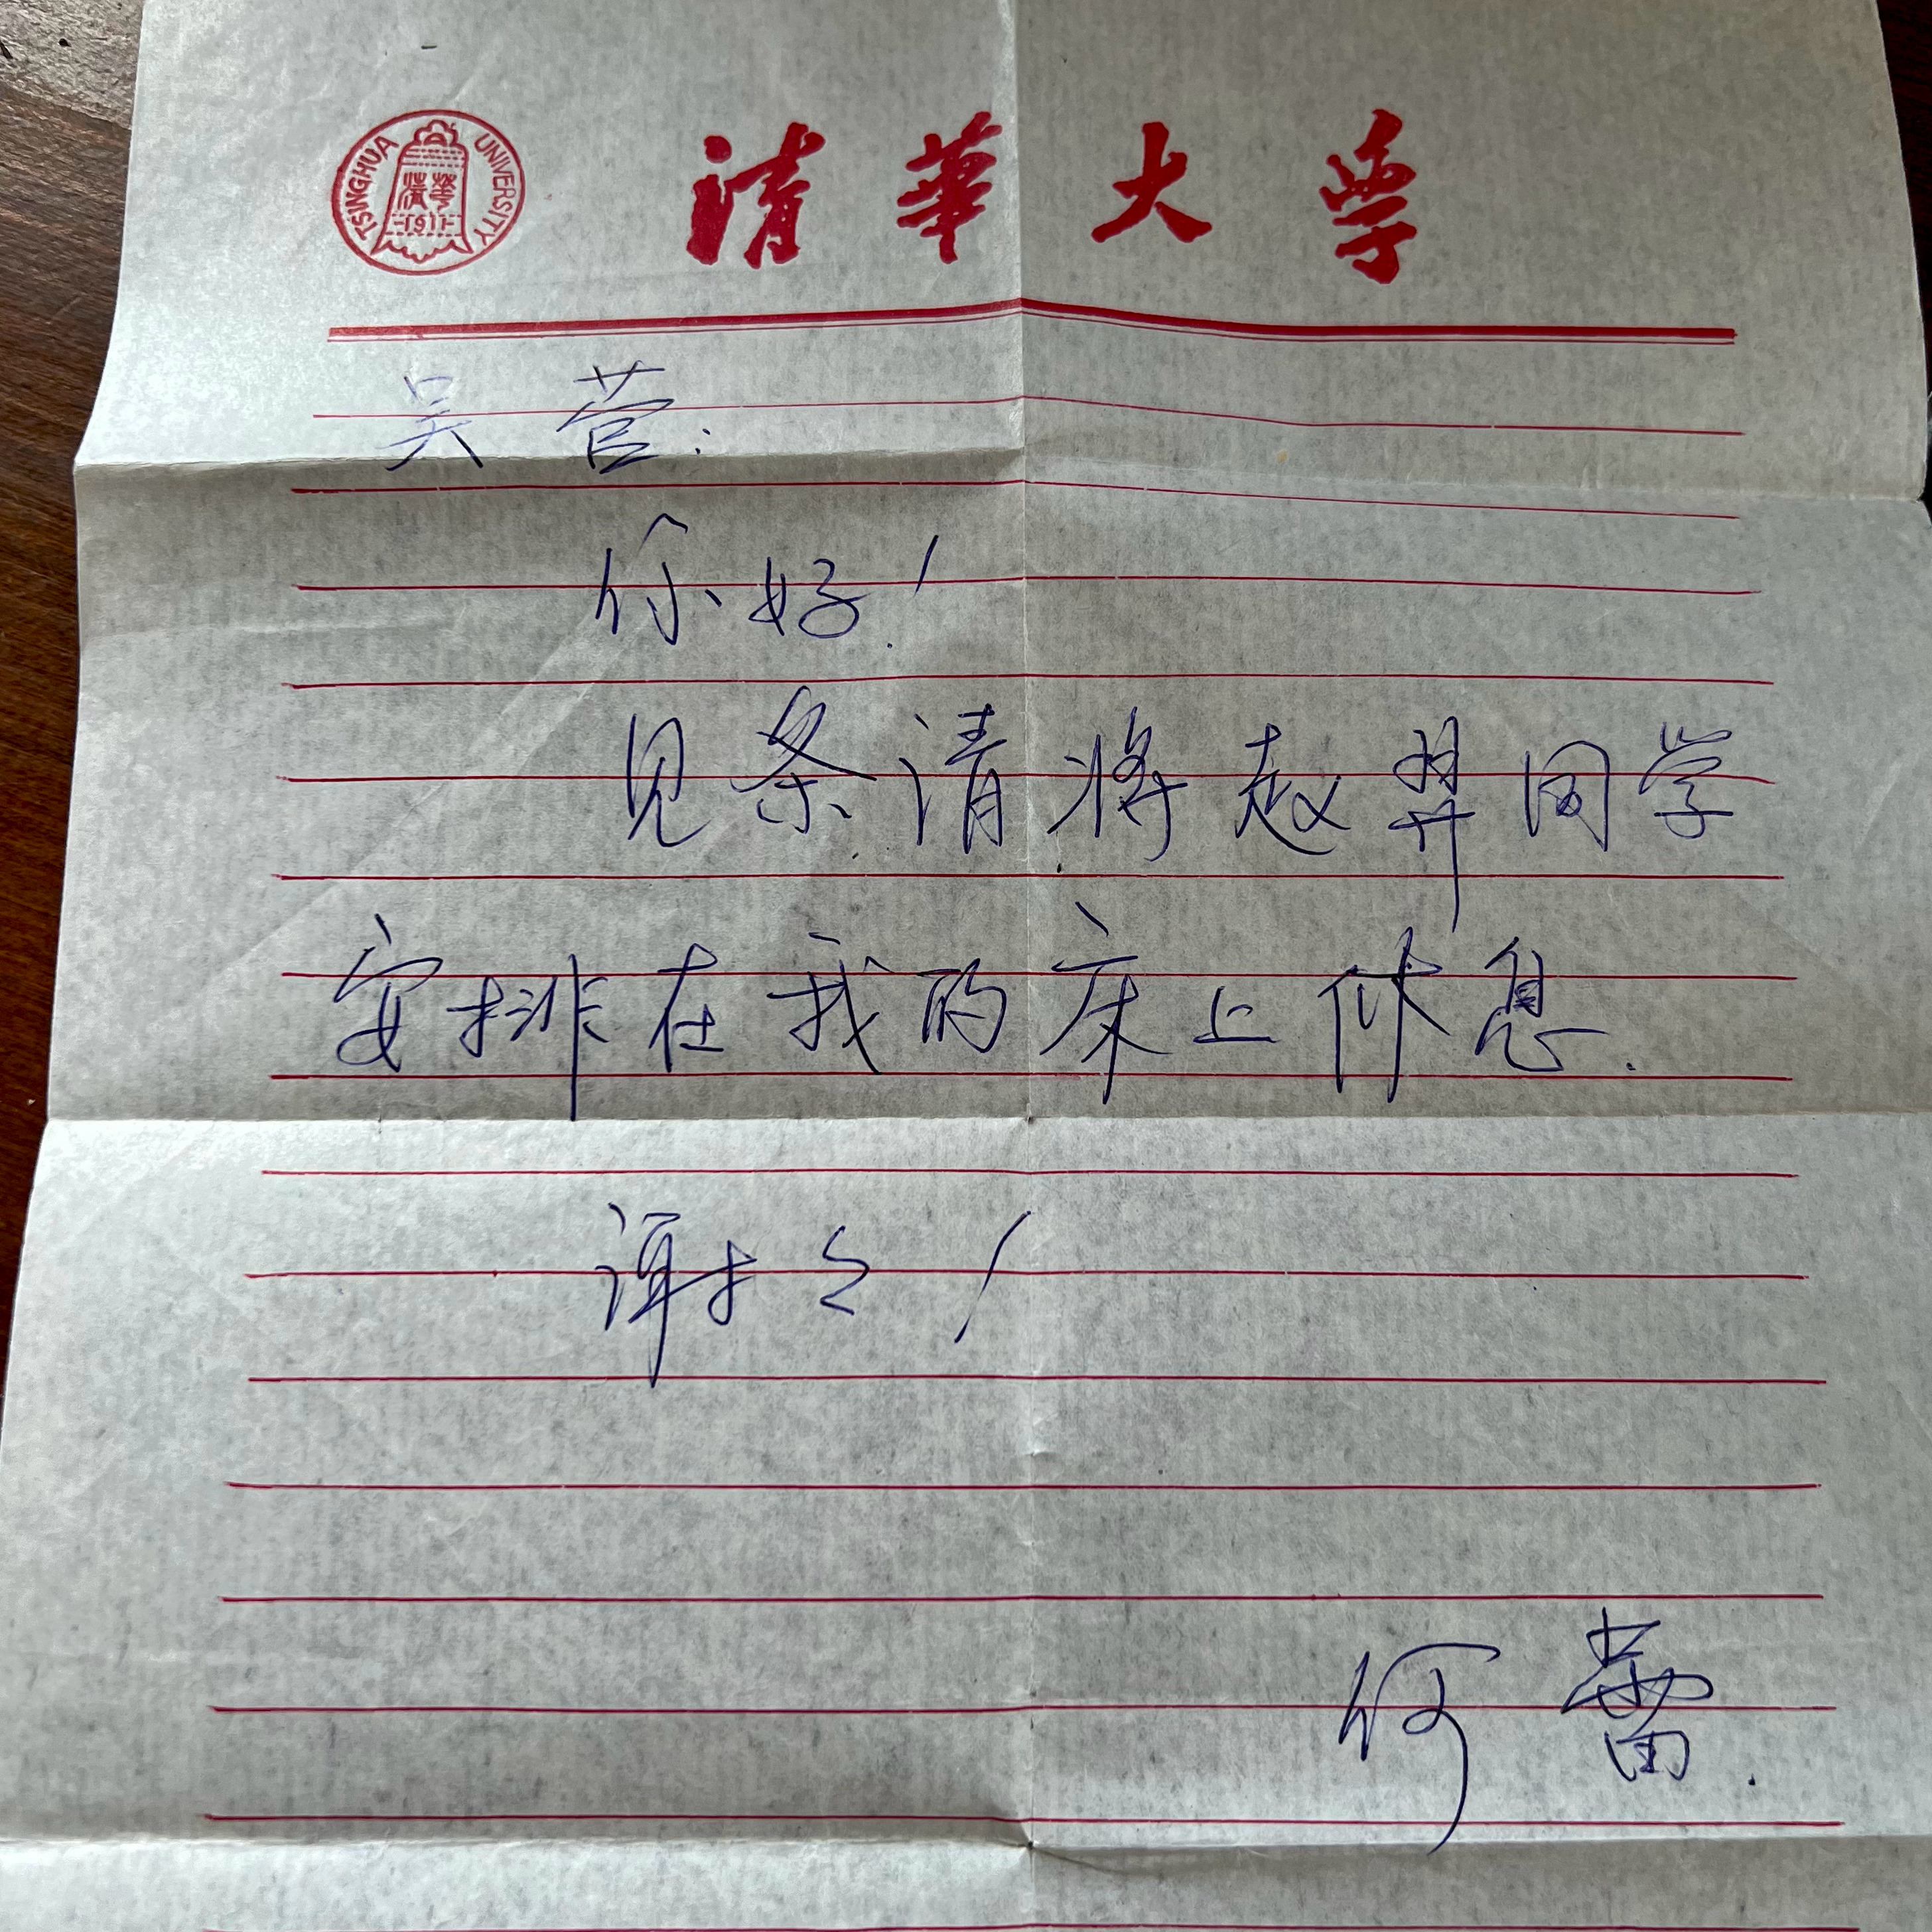 TSINGHUA UNIVERSITY
清華
-1911-
清華大學
吴萱:
你好!
见条请将赵羿同学
安排在我的床上休息.
谢谢!
何蕾.